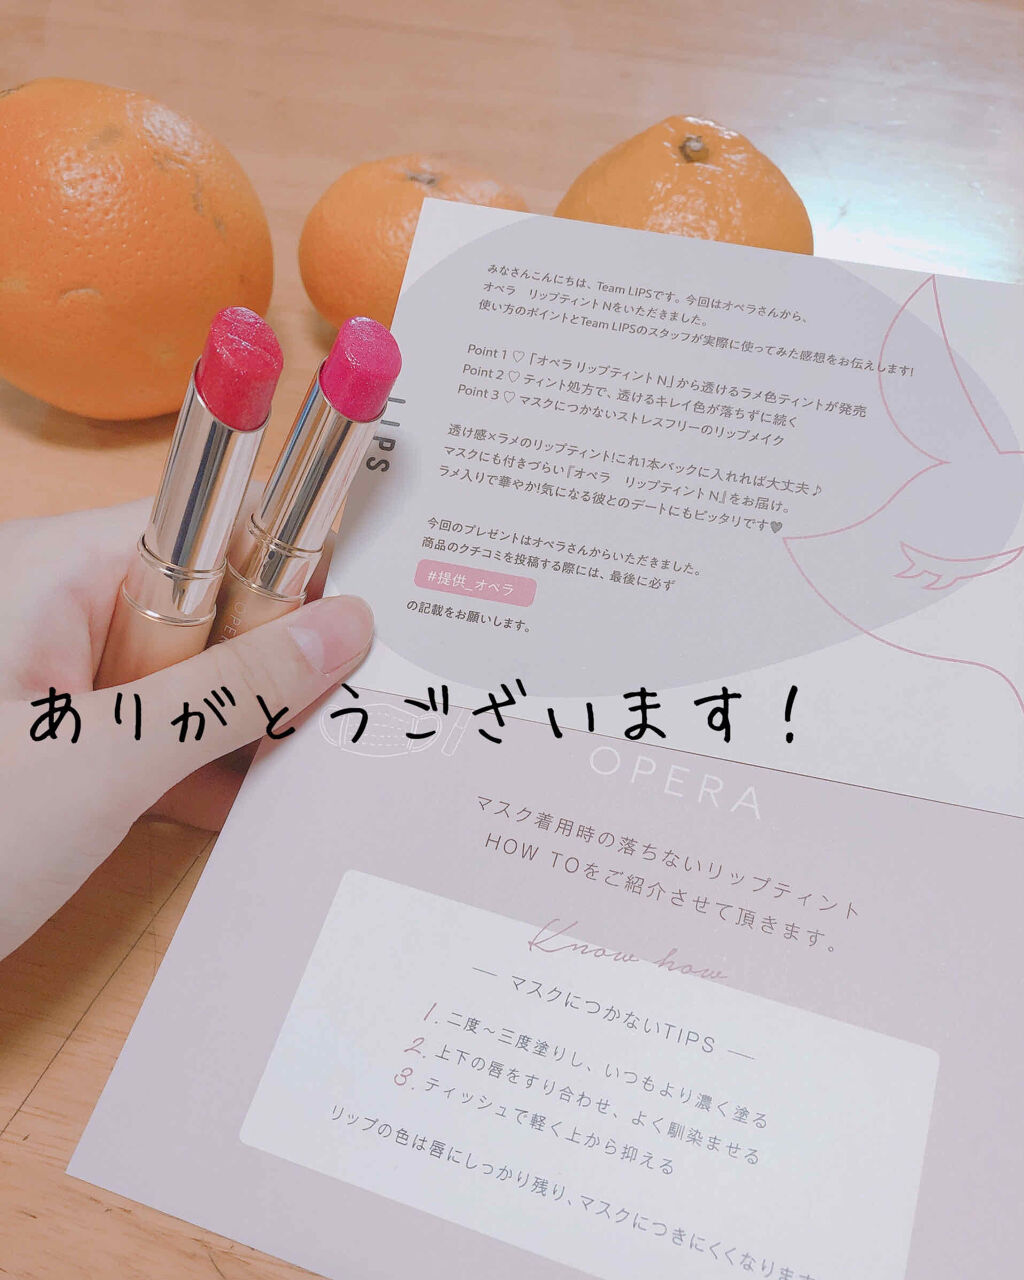 みなさんこんにちは、Team LIPSです。今回はオペラさんから、
オペラ　リップティント Nをいただきました。
使い方のポイントとTeam LIPSのスタッフが実際に使ってみた感想をお伝えします!
Point 1 ♡「オペラ リップティント N」から透けるラメ色ティントが発売
Point 2 ♡ ティント処方で、透けるキレイ色が落ちずに続く
Point 3 ♡ マスクにつかないストレスフリーのリップメイク
LIPS
透け感×ラメのリップティント!これ1本バックに入れれば大丈夫♪
マスクにも付きづらい『オペラ　リップティント N』をお届け。
ラメ入りで華やか!気になる彼とのデートにもピッタリです♥
今回のプレゼントはオペラさんからいただきました。
商品のクチコミを投稿する際には、最後に必ず
#提供_オペラ
の記載をお願いします。
OPER
ありがとうございます！
OPERA
マスク着用時の落ちないリップティント
HOW TOをご紹介させて頂きます。
Know how
― マスクにつかないTIPS ―
1. 二度～三度塗りし、いつもより濃く塗る
2. 上下の唇をすり合わせ、よく馴染ませる
3. ティッシュで軽く上から抑える
リップの色は唇にしっかり残り、マスクにつきにくくなります